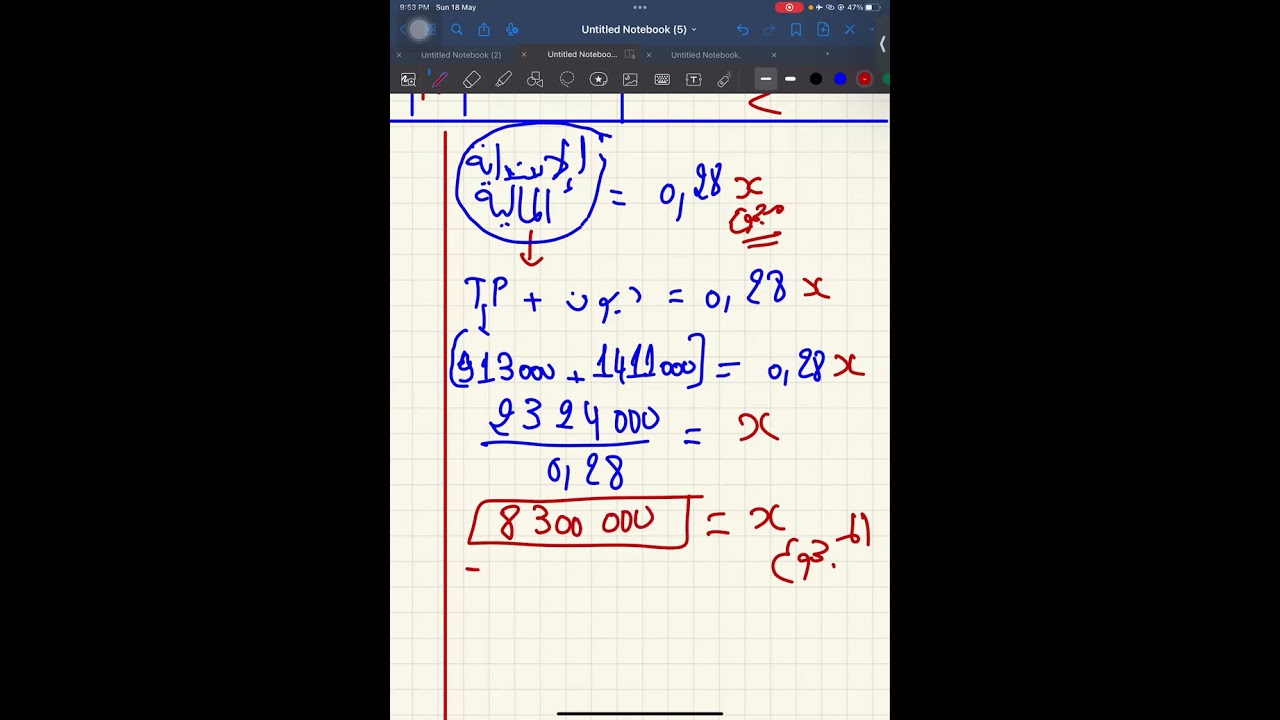 9:53 PM Sun 18 May
47%
Untitled Notebook (5)
Untitled Notebook (2)
Untitled Noteboo...
Untitled Notebook.
الاستدانة
المالية
= 0,28 x
مجموع
TP + ديون = 0,28 x
[913000 + 1411000] = 0,28 x
2324000
= x
0,28
8300 000 = x